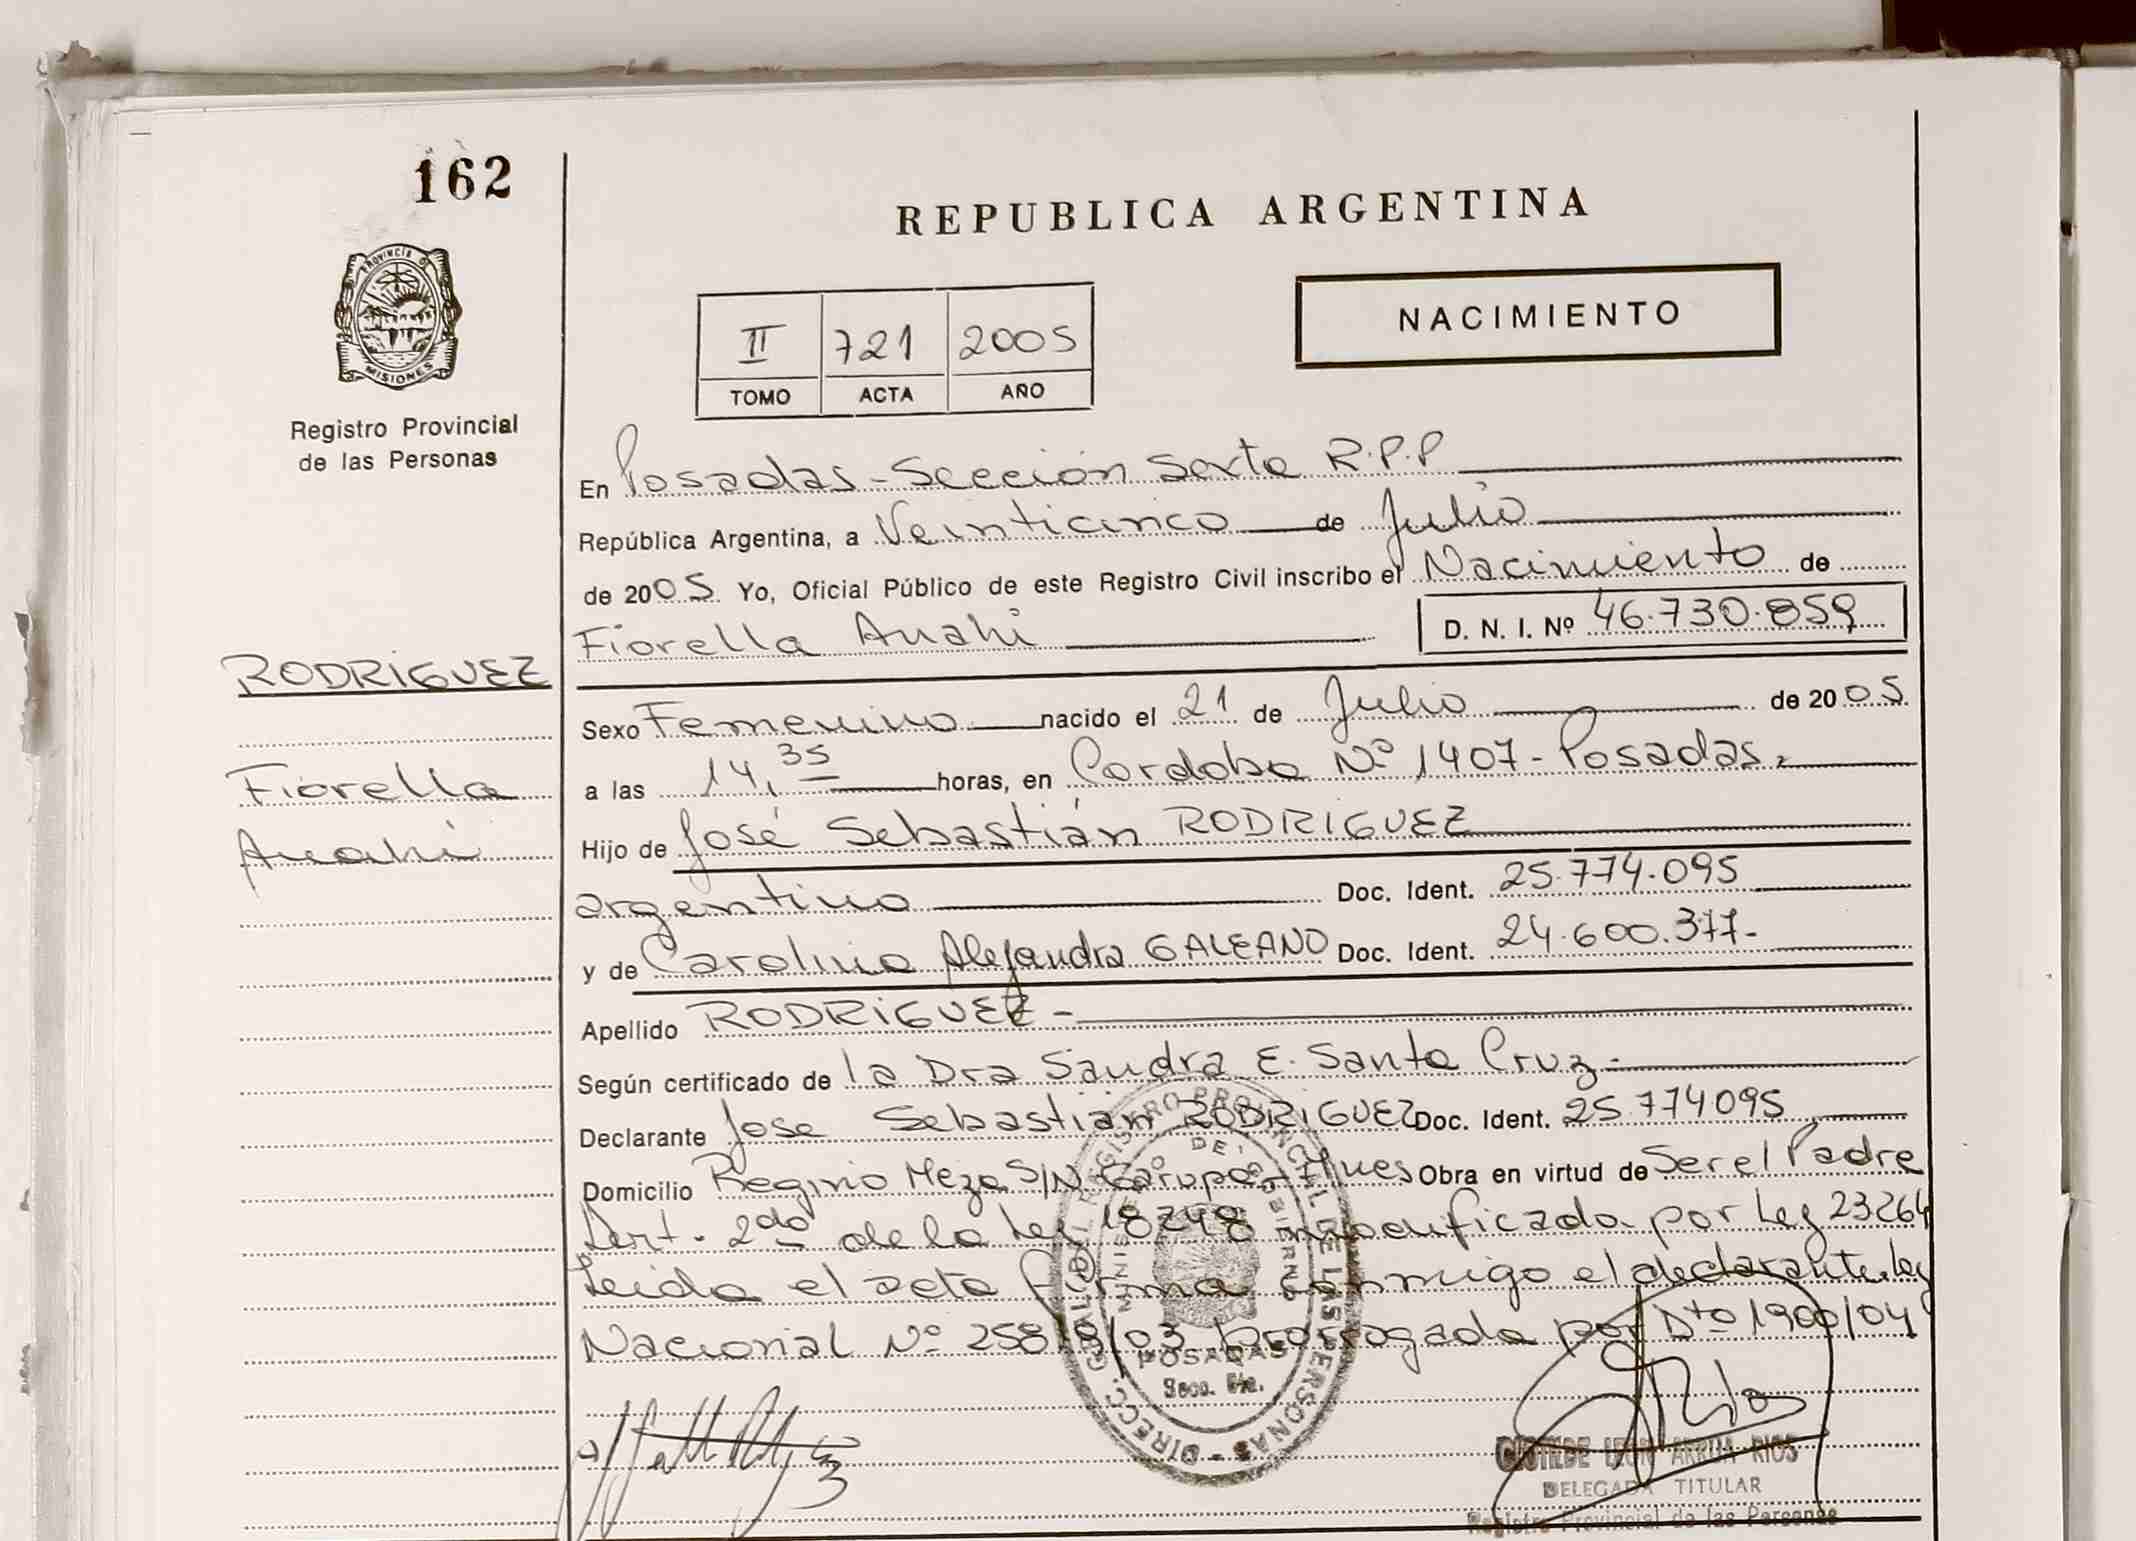 162
REPUBLICA ARGENTINA
PROVINCIA DE
MISIONES
Registro Provincial
de las Personas
NACIMIENTO
II 721 2005
TOMO ACTA AÑO
En Posadas - Sección Sexta R.P.P
República Argentina, a Veinticinco de Julio
de 2005 Yo, Oficial Público de este Registro Civil inscribo el Nacimiento de
Fiorella Anahi D. N. I. Nº 46.730.859
RODRIGUEZ
Fiorella
Anahi
Sexo Femenino nacido el 21 de Julio de 2005
a las 14,35 horas, en Cordoba Nº 1407 - Posadas.
Hijo de José Sebastián RODRIGUEZ
argentino Doc. Ident. 25.774.095
y de Carolina Alejandra GALEANO Doc. Ident. 24.600.377.-
Apellido RODRIGUEZ -
Según certificado de la Dra Sandra E. Santa Cruz -
Declarante Jose Sebastián RODRIGUEZ Doc. Ident. 25.774095
Domicilio Reginio Meza S/N Garupa - Mnes Obra en virtud de Ser el Padre
Art. 2do de la Ley 18248 modificado por Ley 23264
Leida el acta firma conmigo el declarante. ley
Nacional Nº 25819/03 prorrogada por Dto 1900/04
DIRECC. GRAL. DEL REGISTRO PROVINCIAL DE LAS PERSONAS
MINISTERIO DE GOBIERNO
POSADAS
Secc. 6ta.
ARRUA RIOS
DELEGADA TITULAR
Registro Provincial de las Personas